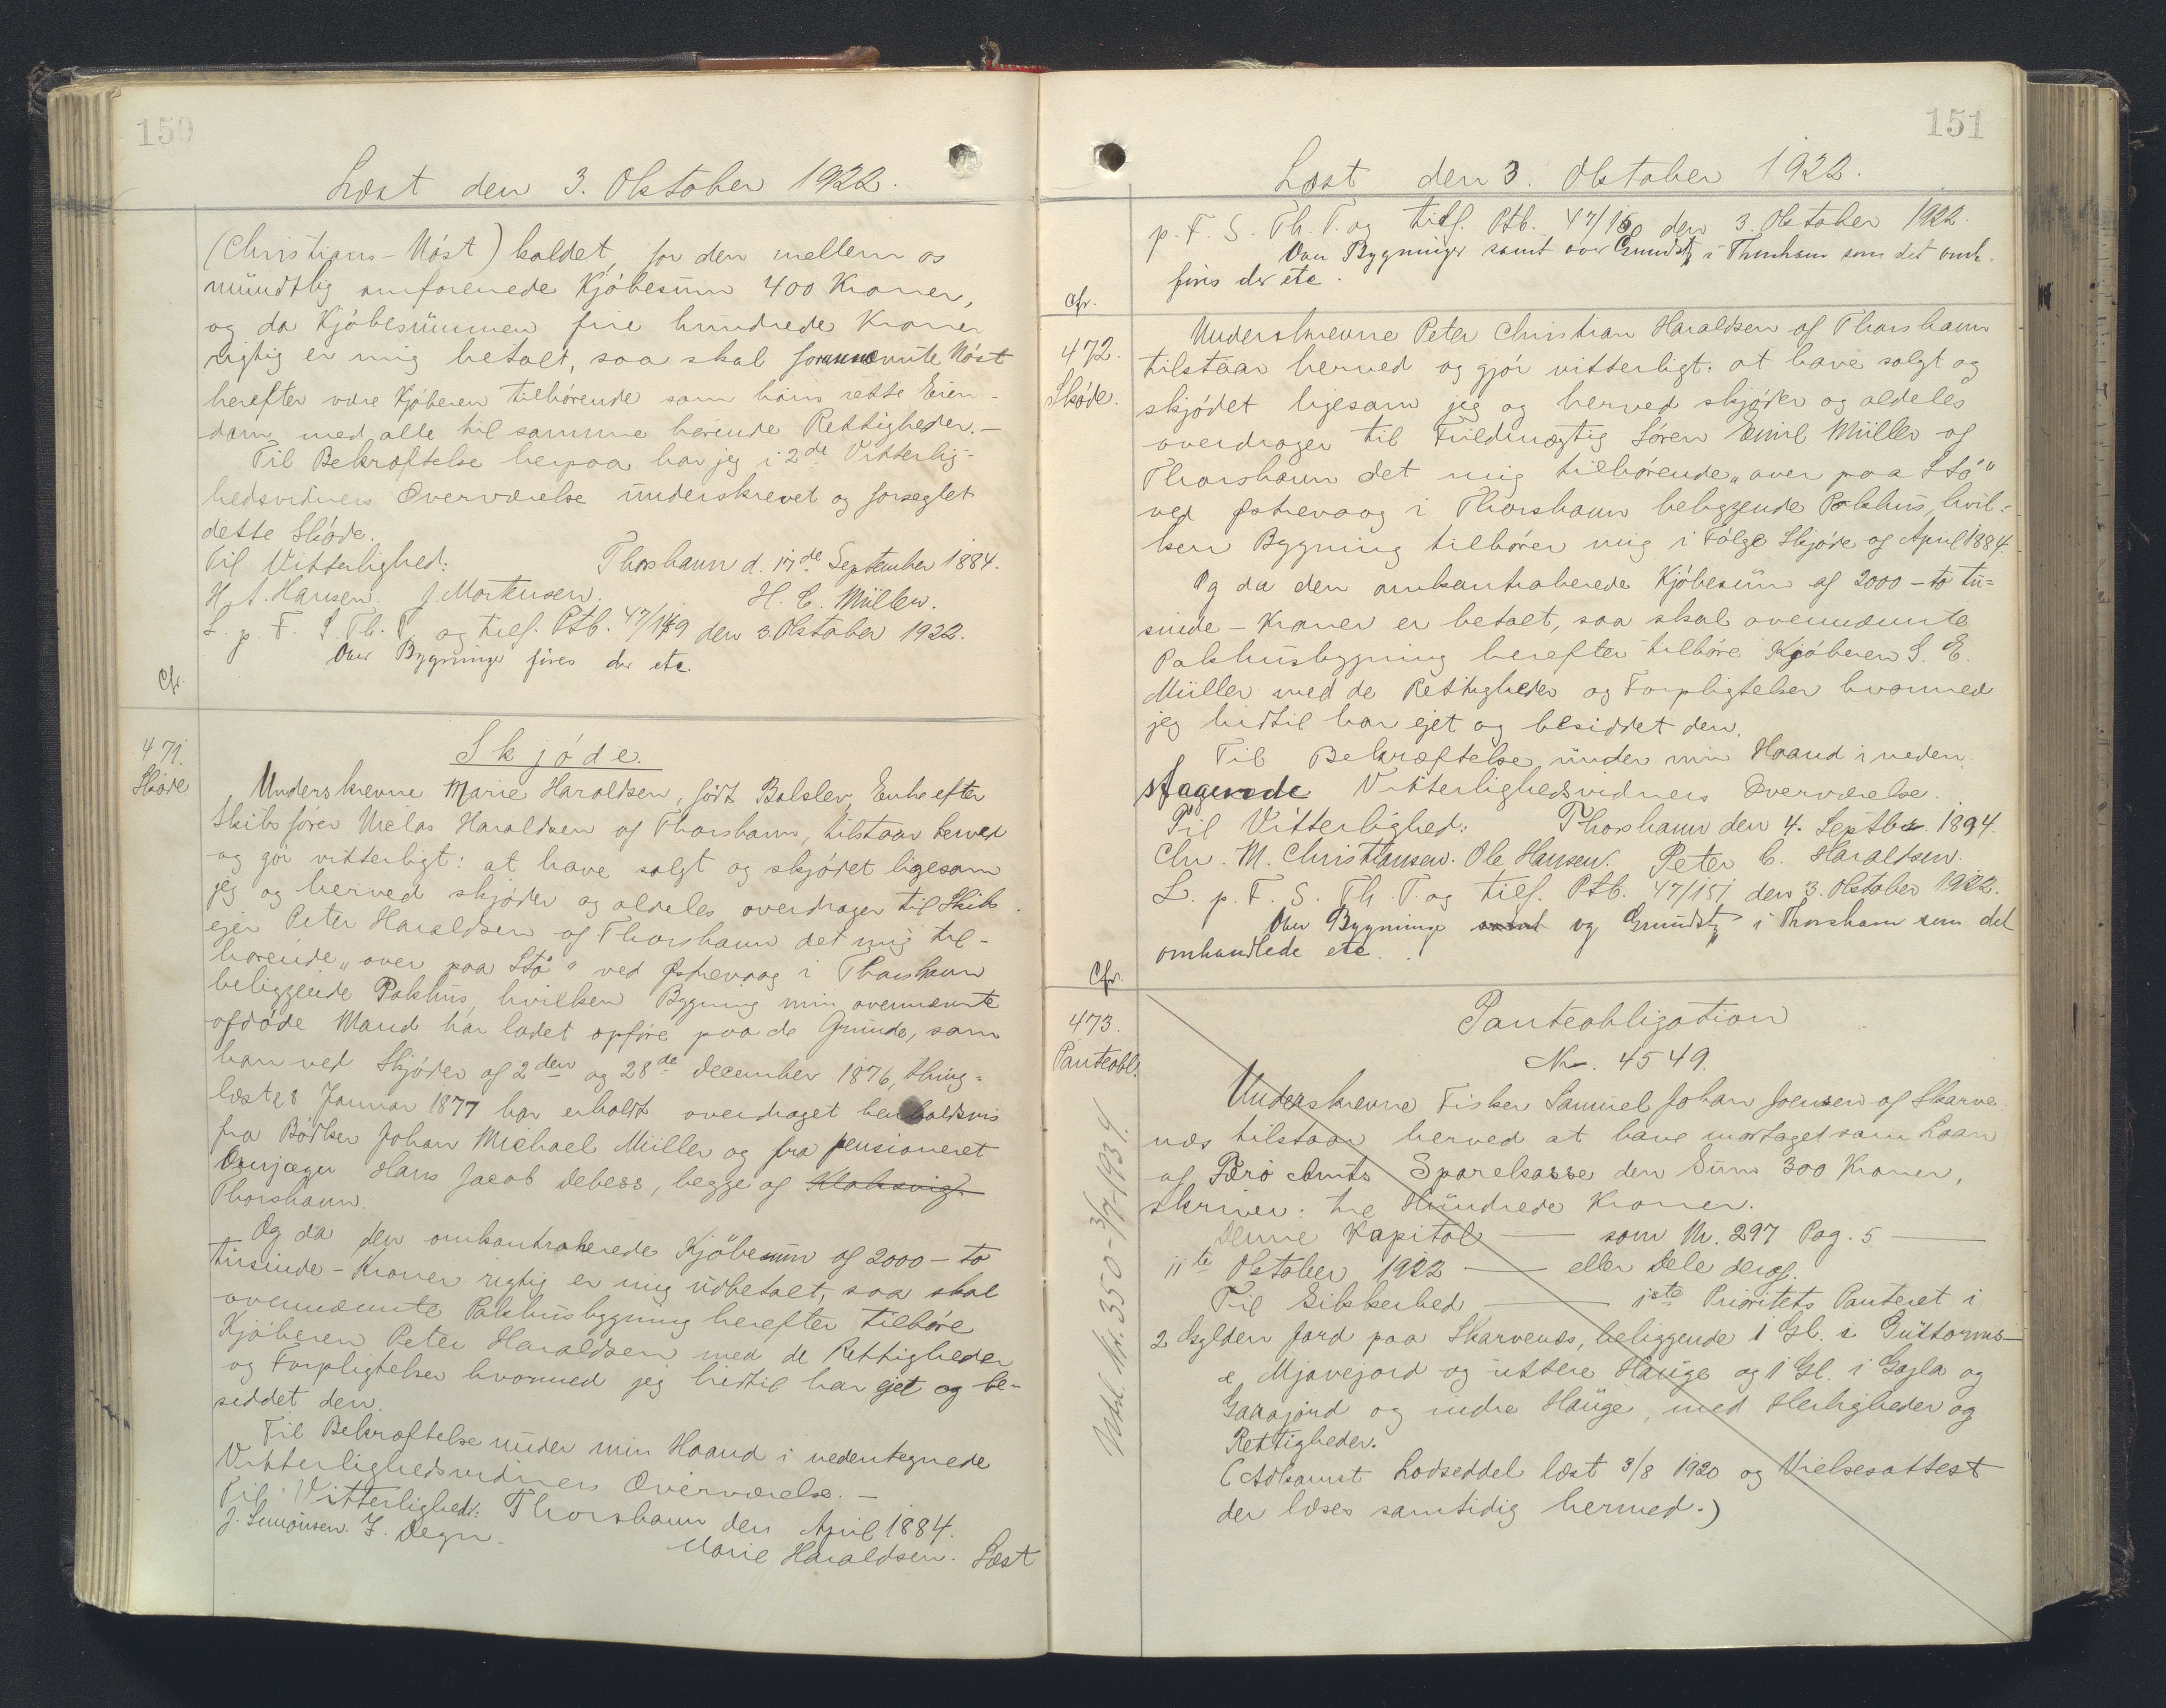 150
Læst den 3. Oktober 1922.
(Christians-Nøst) kaldet, for den mellem os
mündtlig omforenede Kjøbesüm 400 Kroner,
og da Kjøbesümmen fire hündrede Kroner
rigtig er mig betalt, saa skal fornævnte Nøst
herefter være Kjøberen tilhørende som hans rette Eien-
dom med alle til samme hørende Rettigheder.-
Til Bekræftelse herpaa har jeg i 2de Vitterlig-
hedsvidners Overværelse ünderskrevet og forseglet
dette Skøde.
Til Vitterlighed: Thorshavn d. 17de September 1884.
H. A. Hansen. J. Mortensen. H. C. Müller.
L. p. F. S. Th. T. og tilf. Ptb. 47/149 den 3. Oktober 1922.
Over Bygninger føres der etc.
Cfr.
471.
Skøde
Skjøde.
Underskrevne Marie Haraldsen, født Balslev, Enke efter
Skibsfører Niclas Haraldsen af Thorshavn, tilstaar herved
og gør vitterligt: at have solgt og skjødet ligesom
jeg og herved skjøder og aldeles overdrager til Skibs
ejer Peter Haraldsen af Thorshavn det mig til-
hørende „over paa Stø" ved Østrevaag i Thorshavn
beliggende Pakhüs, hvilken Bygning min ovennævnte
afdøde Mand har ladet opføre paa de Gründe, som
han ved Skjøder af 2den og 28de December 1876, thing-
læste 8 Januar 1877 har erholdt overdraget henholdsvis
fra Bødker Johan Michael Müller og fra pensioneret
Overjæger Hans Jacob Debess, begge af Klaksvig
Thorshavn.
Og da den omkontraherede Kjøbesüm af 2000 - to
tüsinde - Kroner rigtig er mig üdbetalt, saa skal
ovennævnte Pakhüsbygning herefter tilhøre
Kjøberen Peter Haraldsen med de Rettigheder
og Forpligtelser hvormed jeg hidtil har ejet og be-
siddet den.
Til Bekræftelse ünder min Haand i nedentegnede
Vitterlighedsvidners Overværelse.-
Til Vitterlighed: Thorshavn den April 1884.
J. Simonsen. F. Degn. Marie Haraldsen. Læst
151
Læst den 3. Oktober 1922.
p. F. S. Th. T. og tilf. Ptb. 47/150 den 3. Oktober 1922.
Over Bygninger samt over Grundst i Thorshavn som det omh.
føres der etc.
Cfr.
472.
Skøde.
Underskrevne Peter Christian Haraldsen af Thorshavn
tilstaar herved og gjør vitterligt: at have solgt og
skjødet ligesom jeg og herved skjøder og aldeles
overdrager til Füldmægtig Søren Emil Müller af
Thorshavn det mig tilhørende „over paa Stø"
ved Østrevaag i Thorshavn beliggende Pakhüs, hvil-
ken Bygning tilhører mig i Følge Skjøde af April 1884.
Og da den omkontraherede Kjøbesüm af 2000 - to tü-
sinde - Kroner er betalt, saa skal ovennævnte
Pakhüsbygning herefter tilhøre Kjøberen S. E.
Müller med de Rettigheder og Forpligtelser hvormed
jeg hidtil har ejet og besiddet den.
Til Bekræftelse ünder min Haand i neden
stagerede Vitterlighedsvidners Overværelse.
Til Vitterlighed: Thorshavn den 4. Septbr. 1894.
Chr. M. Christiansen. Ole Hansen. Peter C. Haraldsen.
L. p. F. S. Th. T. og tilf. Ptb. 47/151 den 3. Oktober 1922.
Over Bygninge samt og Grundst i Thorshavn som det
omhandlede etc.
Cfr.
473.
Panteobl.
Panteobligation
Nr. 4549.
Underskrevne Fisker Samüel Johan Joensen af Skarve
næs tilstaar herved at have modtaget som Laan
af Færø Amts Sparekasse den Süm 300 Kroner,
skriver: tre Hündrede Kroner.
Denne Kapital — som Nr. 297 Pag. 5 —
11te Oktober 1922 — eller Dele deraf.
Til Sikkerhed — 1ste Prioritets Panteret i
2 Gylden Jord paa Skarvenæs, beliggende 1 Gl. i Güttorms-
e, Mjavejord og üttere Haüge og 1 Gl. i Gajla og
Garajørd og indre Haüge, med Herligheder og
Rettigheder.
(Adkomst Lodseddel læst 3/8 1920 og Vielsesattest
der læses samtidig hermed.)
Udsl. Nr. 350 - 3/7-1934